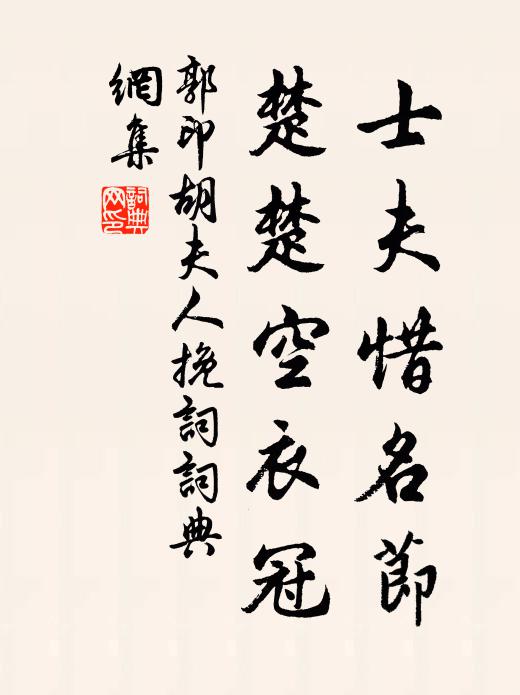 士夫惜名節
楚楚空衣冠
郭印胡夫人挽詞詞典
網集
詞典網印